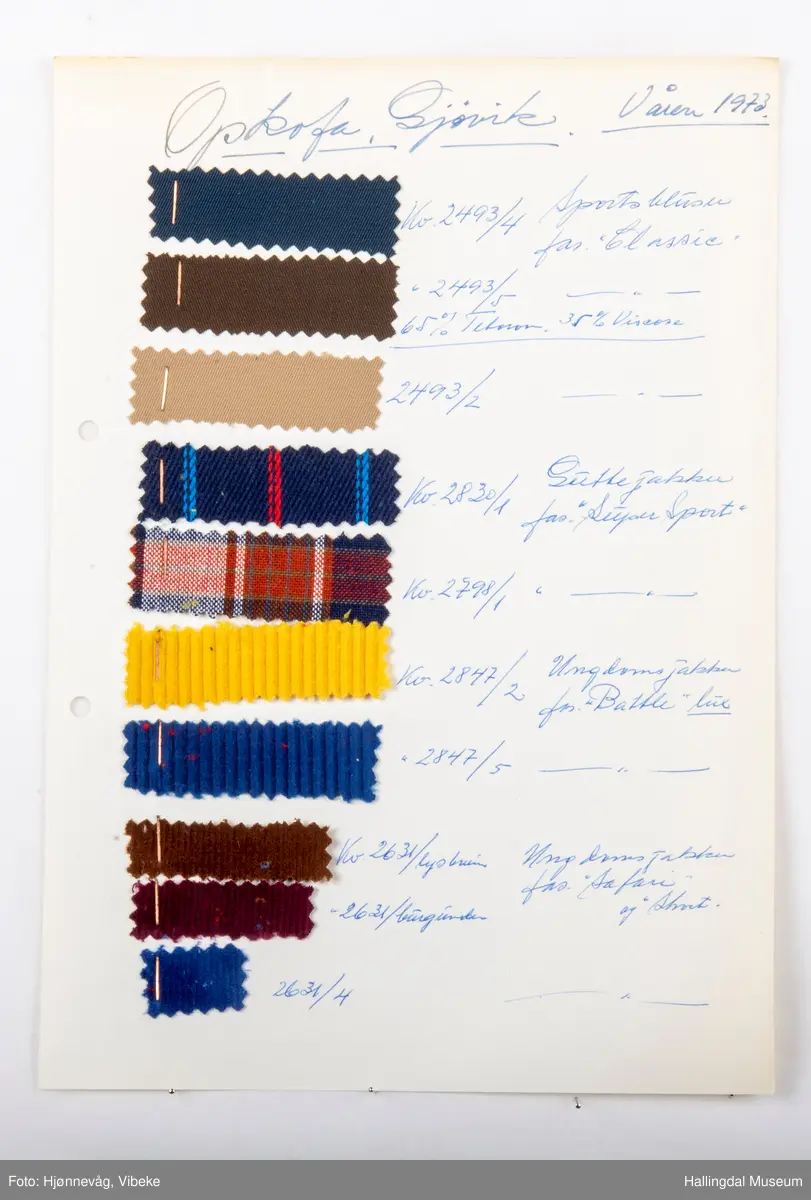 Opkofa, Gjøvik. Våren 1973.
Kv. 2493/4 Sportsbluser
fas. "Classic"
" 2493/5 — " —
65% Tetoron. 35% Viscose
2493/2 — " —
Kv. 2830/1 Guttejakker
fas. "Super Sport"
Kv. 2798/1 " — " —
Kv. 2847/2 Ungdomsjakker
fas. "Battle" lux
" 2847/5 — " —
Kv. 2631/lysbrun Ungdomsjakker
fas. "Safari"
" 2631/burgunder og "Short"
2631/4 — " —
Foto: Hjønnevåg, Vibeke
Hallingdal Museum